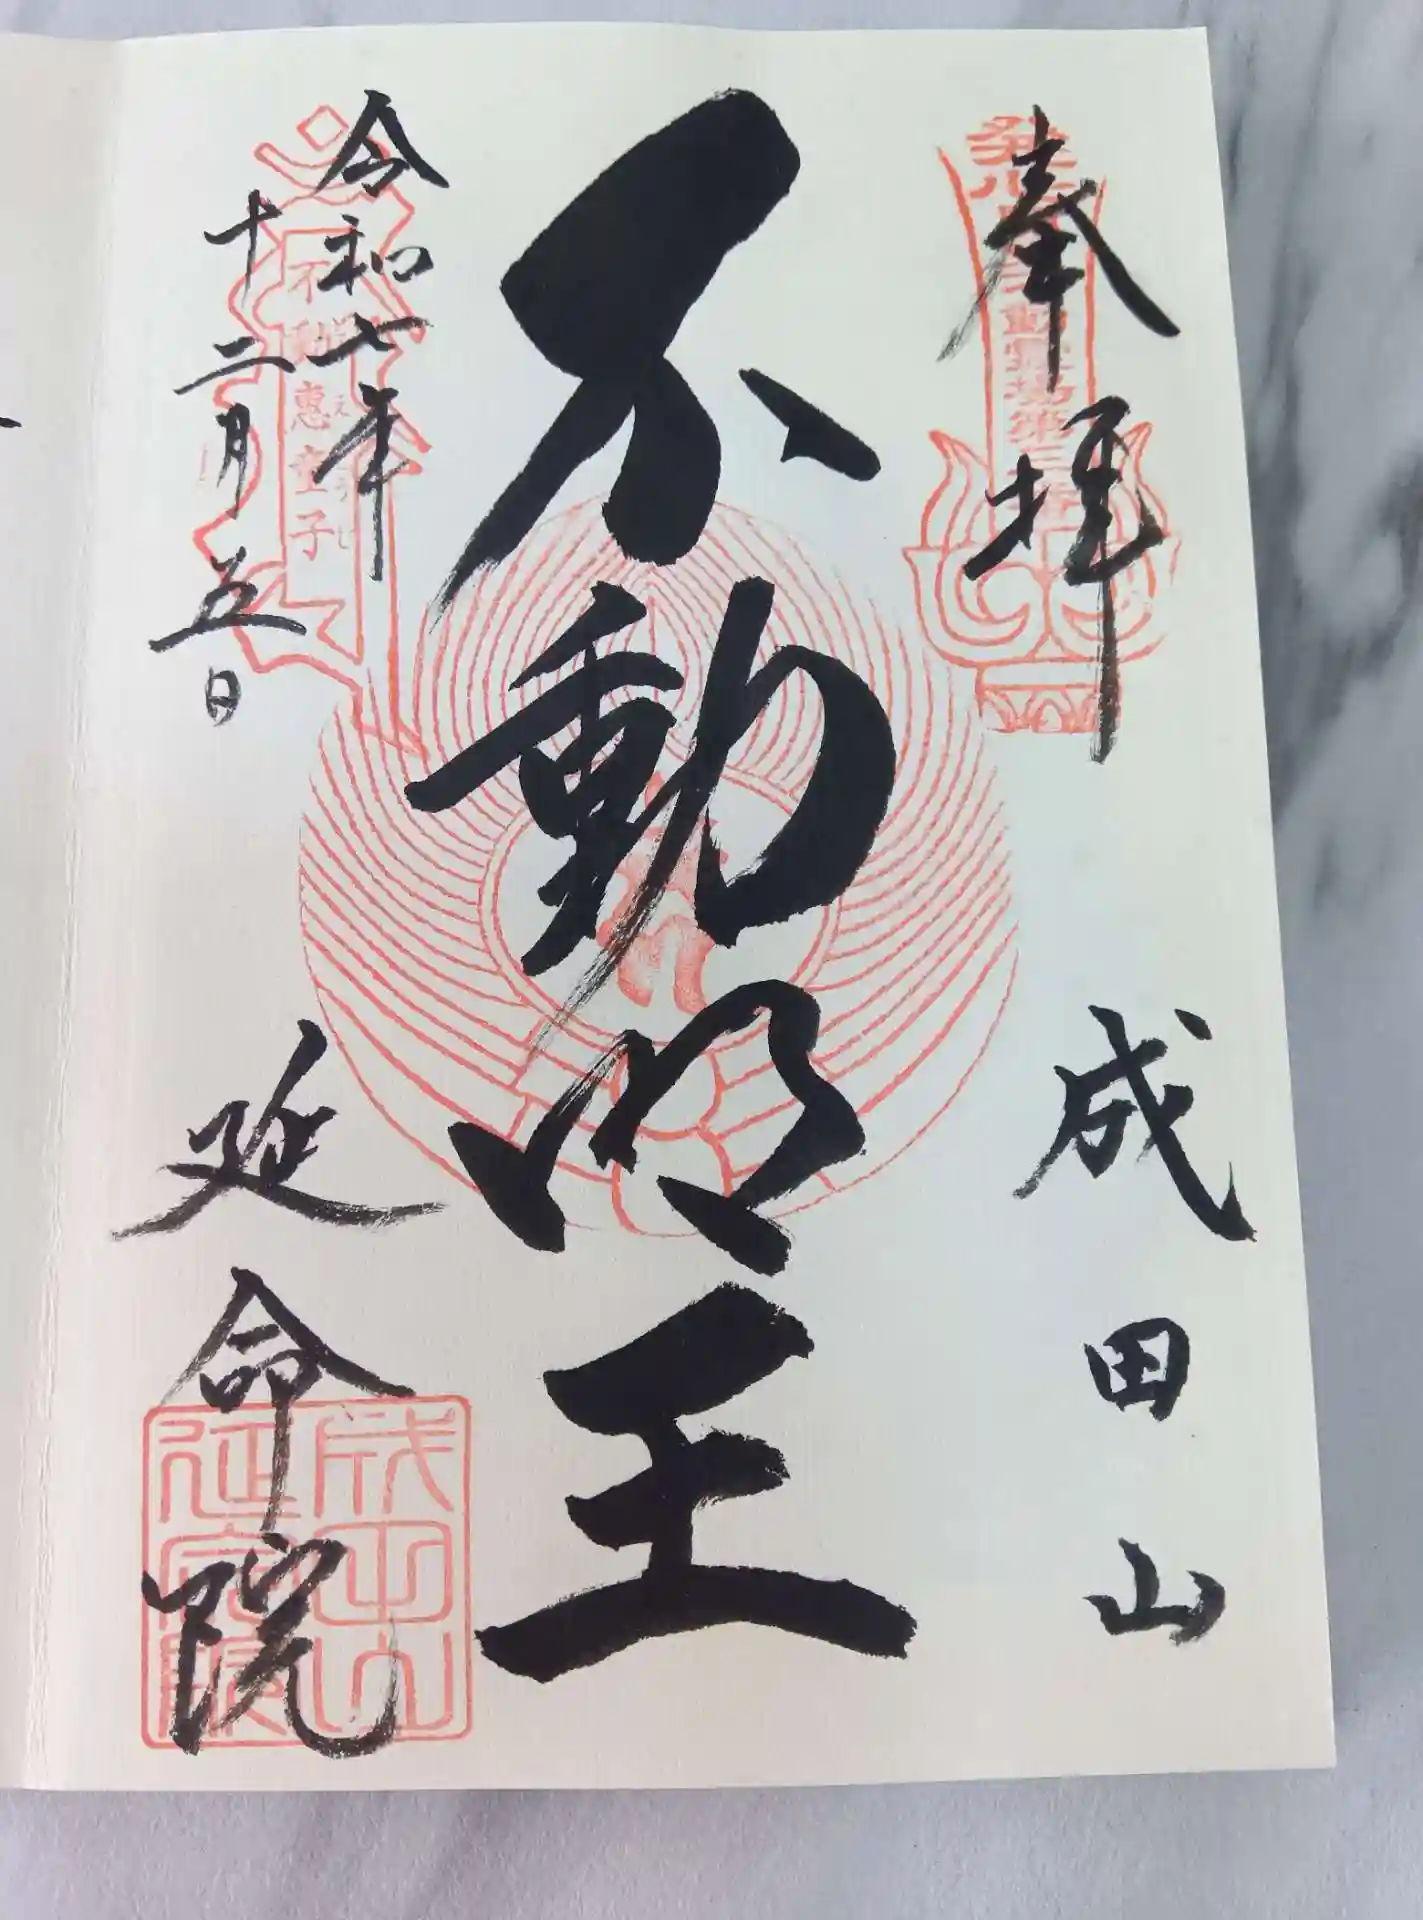 奉拝
成田山
不動明王
令和七年
十二月五日
延命院
動霊場第
不動
惠童子
成田山
延命院